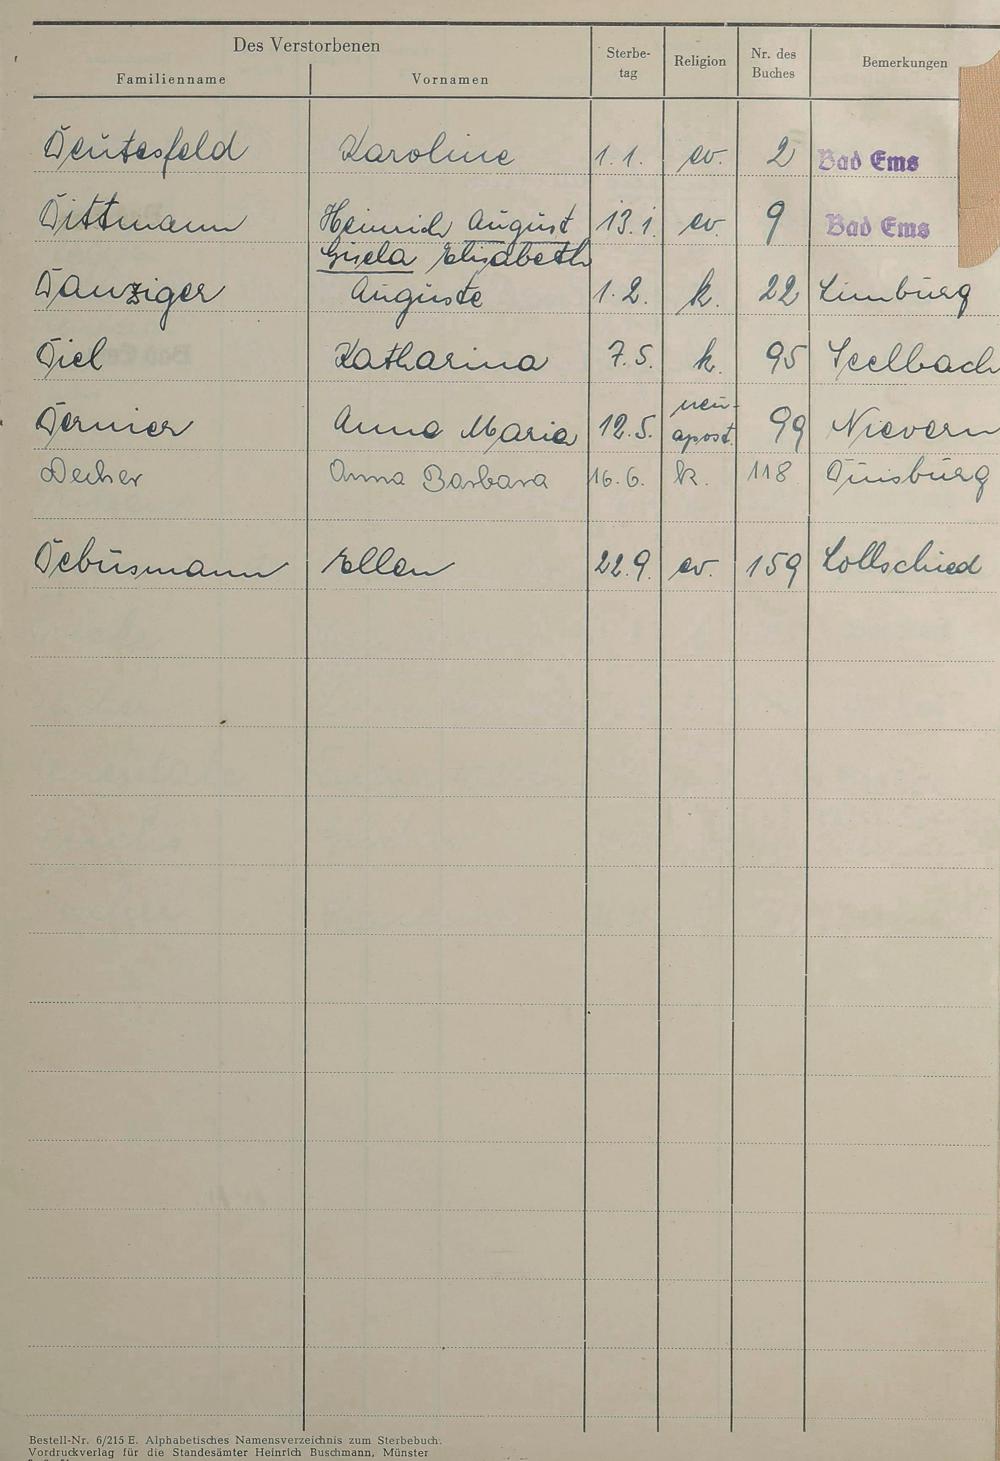 Des Verstorbenen
Familienname Vornamen Sterbe-tag Religion Nr. des Buches Bemerkungen
Deutesfeld Karoline 1.1. ev. 2 Bad Ems
Dittmann Heinrich August 13.1. ev. 9 Bad Ems
Gisela Elisabeth
Danziger Auguste 1.2. k. 22 Limburg
Diel Katharina 7.5. k. 95 Seelbach
Dernier Anna Maria 12.5. neu-apost. 99 Nievern
Decher Anna Barbara 16.6. k. 118 Duisburg
Debusmann Ellen 22.9. ev. 159 Lollschied
Bestell-Nr. 6/215 E. Alphabetisches Namensverzeichnis zum Sterbebuch.
Vordruckverlag für die Standesämter Heinrich Buschmann, Münster